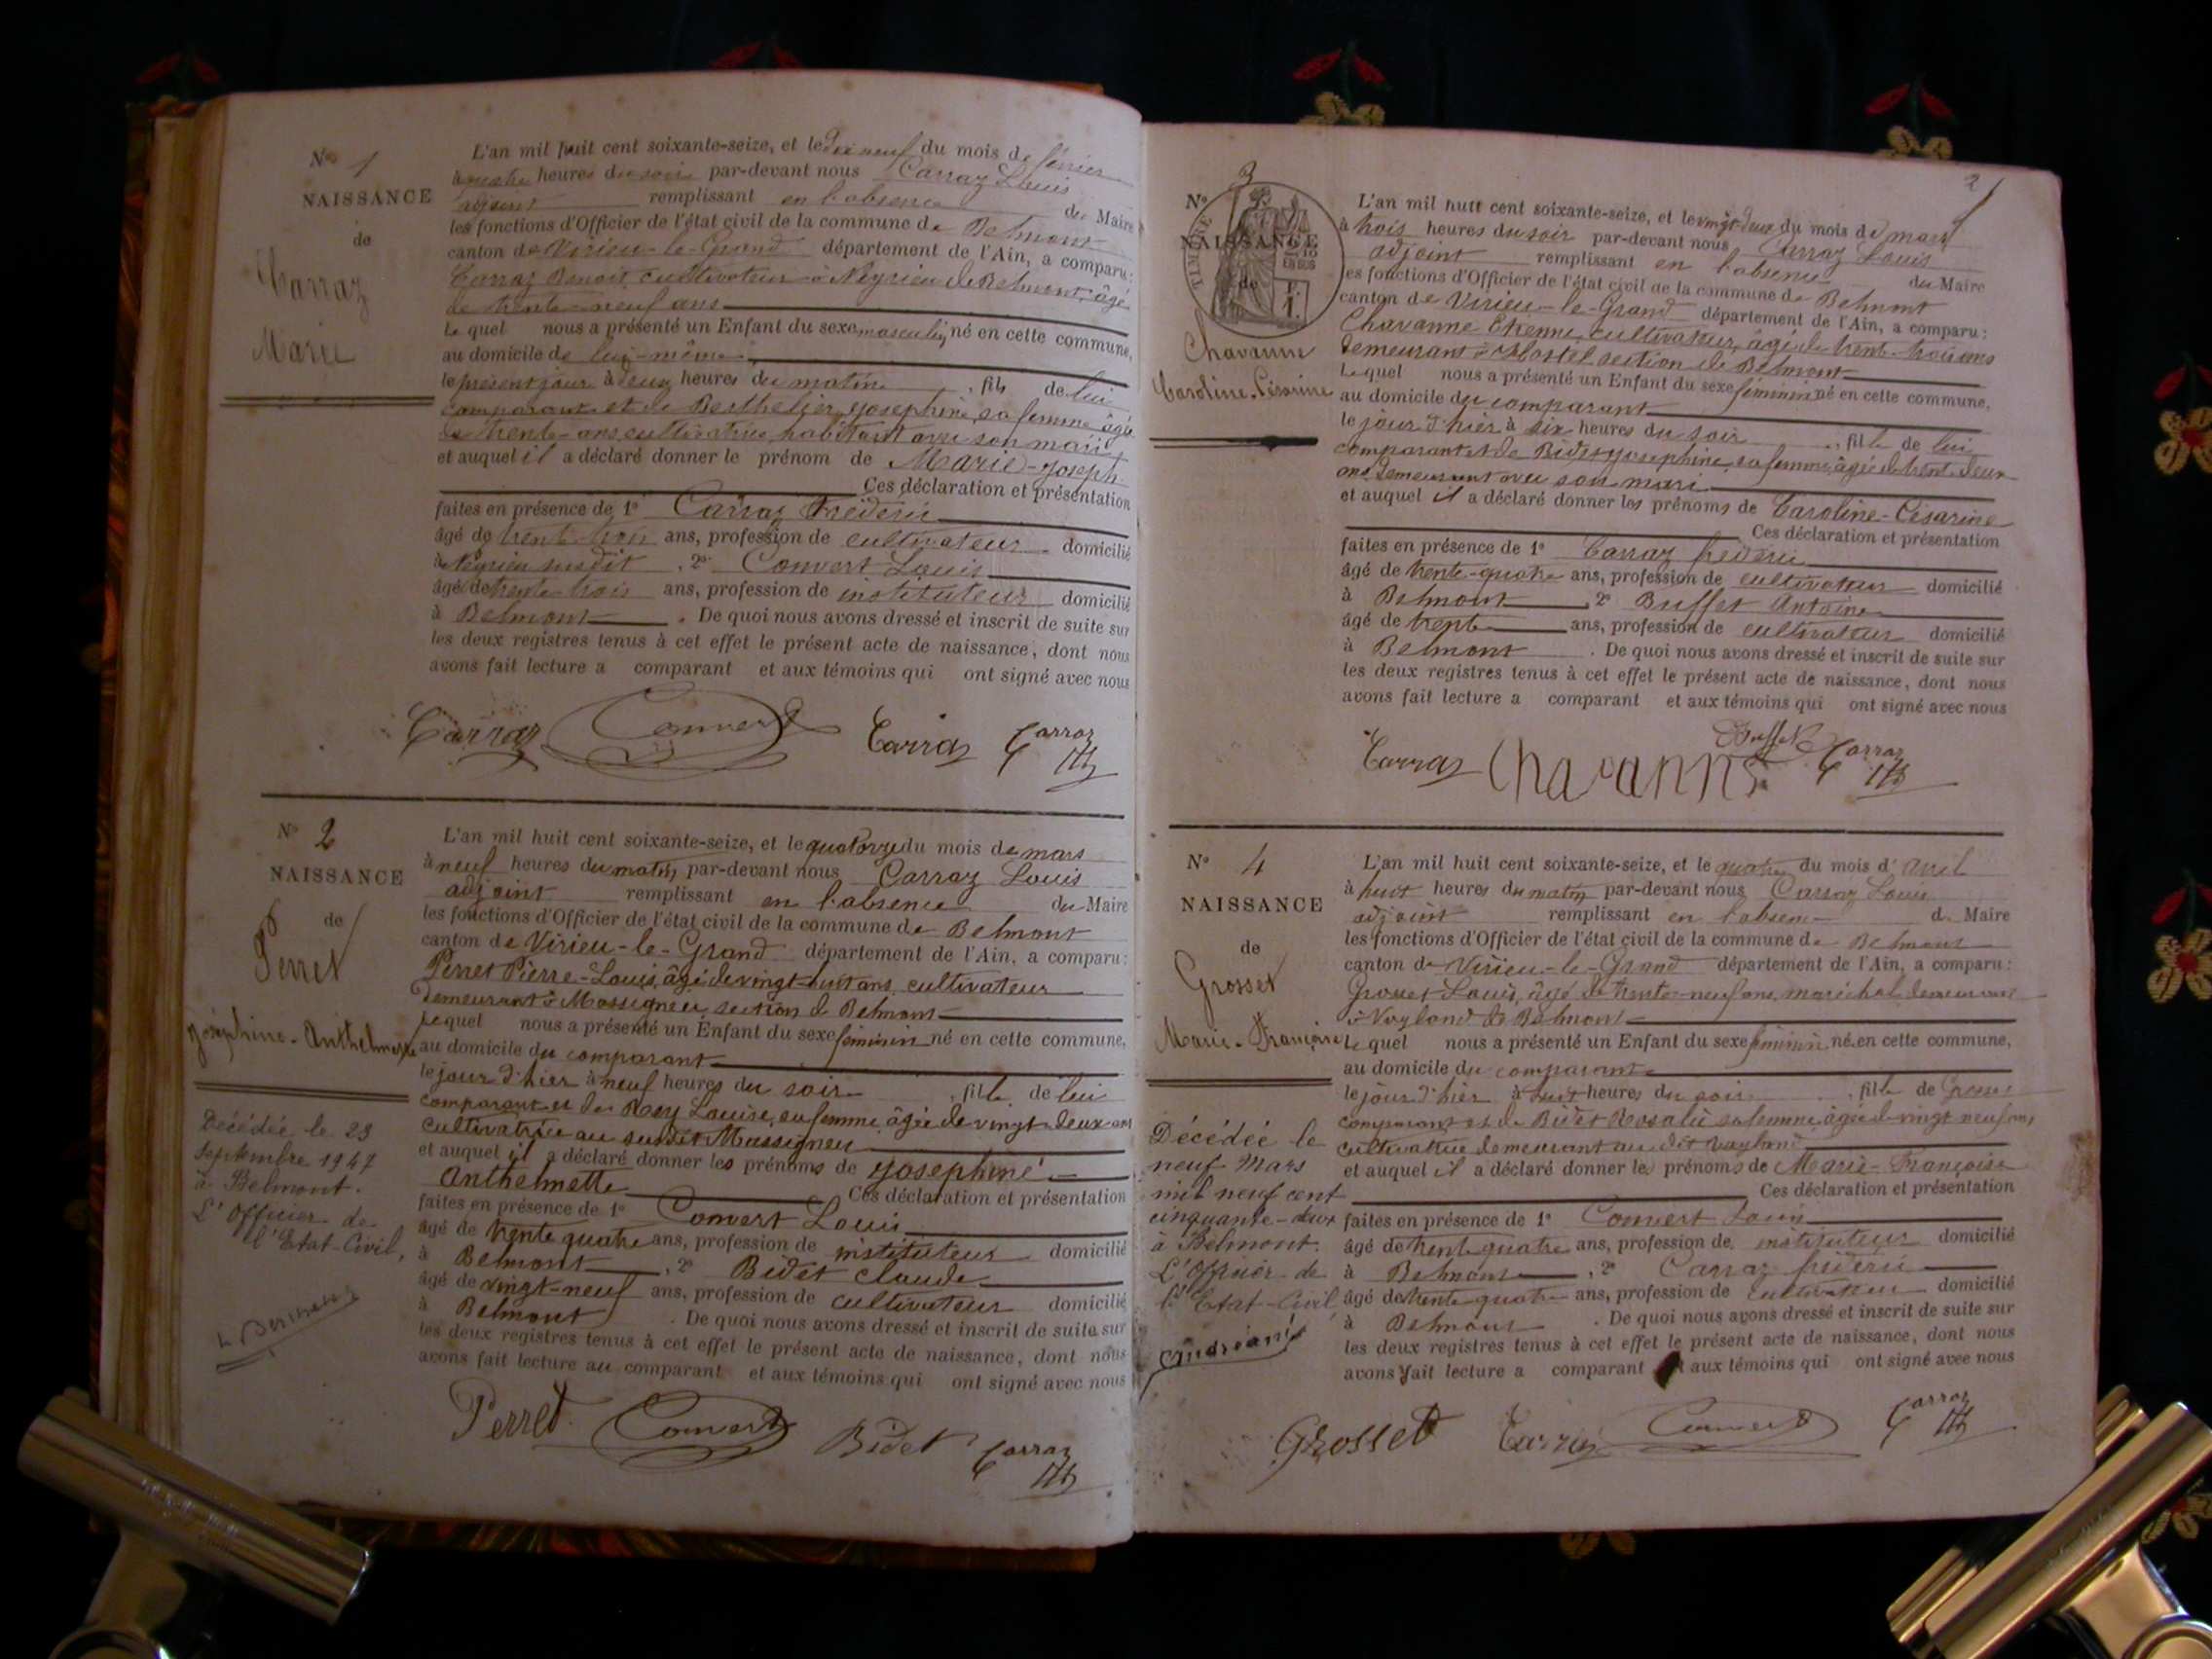 N° 1
NAISSANCE
de
Carraz
Marie
L'an mil huit cent soixante-seize, et le dix neuf du mois de février
à quatre heures du soir par-devant nous Carraz Louis
adjoint remplissant en l'absence du Maire
les fonctions d'Officier de l'état civil de la commune de Belmont
canton de Virieu-le-Grand département de l'Ain, a comparu:
Carraz Benoit, cultivateur à Neyrieu de Belmont, âgé
de trente-neuf ans
Le quel nous a présenté un Enfant du sexe masculin, né en cette commune,
au domicile de lui-même
le présent jour à deux heures du matin, fils de lui
comparant et de Berthelier Josephine, sa femme âgée
de trente-ans, cultivatrice, habitant avec son mari,
et auquel il a déclaré donner le prénom de Marie-Joseph.
Ces déclaration et présentation
faites en présence de 1° Carraz Fréderic
âgé de trente trois ans, profession de cultivateur domicilié
à Neyrieu susdit, 2° Convert Louis
âgé de trente trois ans, profession de instituteur domicilié
à Belmont. De quoi nous avons dressé et inscrit de suite sur
les deux registres tenus à cet effet le présent acte de naissance, dont nous
avons fait lecture a comparant et aux témoins qui ont signé avec nous
Carraz Convert Carraz Carraz
N° 2
NAISSANCE
de
Perret
Joséphine-Anthelmette
Décédée le 23
Septembre 1947
à Belmont.
L'Officier de
l'Etat-Civil,
L'an mil huit cent soixante-seize, et le quatorze du mois de mars
à neuf heures du matin, par-devant nous Carraz Louis
adjoint remplissant en l'absence du Maire
les fonctions d'Officier de l'état civil de la commune de Belmont
canton de Virieu-le-Grand département de l'Ain, a comparu:
Perret Pierre-Louis, âgé de vingt-huit ans, cultivateur
demeurant à Massigneu, section de Belmont
Le quel nous a présenté un Enfant du sexe féminin né en cette commune,
au domicile du comparant
le jour d'hier à neuf heures du soir, fille de lui
comparant et de Rey Louise, sa femme, âgée de vingt-deux ans
cultivatrice au susdit Massigneu
et auquel il a déclaré donner les prénoms de Josephine
Anthelmette Ces déclaration et présentation
faites en présence de 1° Convert Louis
âgé de trente quatre ans, profession de instituteur domicilié
à Belmont, 2° Bidet Claude
âgé de vingt-neuf ans, profession de cultivateur domicilié
à Belmont. De quoi nous avons dressé et inscrit de suite sur
les deux registres tenus à cet effet le présent acte de naissance, dont nous
avons fait lecture au comparant et aux témoins qui ont signé avec nous
Perret Convert Bidet Carraz
2
N° 3
TIMBRE
NAISSANCE
de
Chavanne
Caroline-Césarine
L'an mil huit cent soixante-seize, et le vingt-deux du mois de mars
à trois heures du soir par-devant nous Carraz Louis
adjoint remplissant en l'absence du Maire
les fonctions d'Officier de l'état civil de la commune de Belmont
canton de Virieu-le-Grand département de l'Ain, a comparu:
Chavanne Etienne, cultivateur, âgé de trente-trois ans
demeurant à Hostel section de Belmont
Le quel nous a présenté un Enfant du sexe féminin né en cette commune,
au domicile du comparant
le jour d'hier à six heures du soir, fille de lui
comparant et de Bidet Josephine, sa femme, âgée de trente-deux
ans demeurant avec son mari
et auquel il a déclaré donner les prénoms de Caroline-Césarine
Ces déclaration et présentation
faites en présence de 1° Carraz fréderic
âgé de trente-quatre ans, profession de cultivateur domicilié
à Belmont, 2° Buffet Antoine
âgé de trente ans, profession de cultivateur domicilié
à Belmont. De quoi nous avons dressé et inscrit de suite sur
les deux registres tenus à cet effet le présent acte de naissance, dont nous
avons fait lecture a comparant et aux témoins qui ont signé avec nous
Carraz Chavanne Buffet Carraz
N° 4
NAISSANCE
de
Grosset
Marie-Françoise
Décédée le
neuf Mars
mil neuf cent
cinquante-deux
à Belmont.
L'Officier de
l'Etat-Civil
Andréani
L'an mil huit cent soixante-seize, et le quatre du mois d'avril
à huit heures du matin par-devant nous Carraz Louis
adjoint remplissant en l'absence d Maire
les fonctions d'Officier de l'état civil de la commune de Belmont
canton de Virieu-le-Grand département de l'Ain, a comparu:
Grosset Louis, âgé de trente-neuf ans, maréchal demeurant
à Vogland de Belmont
Le quel nous a présenté un Enfant du sexe féminin né en cette commune,
au domicile du comparant
le jour d'hier à huit heures du soir, fille de Grosset
comparant et de Bidet Rosalie sa femme, âgée de vingt neuf ans,
cultivatrice demeurant au dit Vogland
et auquel il a déclaré donner les prénoms de Marie-Françoise
Ces déclaration et présentation
faites en présence de 1° Convert Louis
âgé de trente quatre ans, profession de instituteur domicilié
à Belmont, 2° Carraz fréderic
âgé de trente quatre ans, profession de cultivateur domicilié
à Belmont. De quoi nous avons dressé et inscrit de suite sur
les deux registres tenus à cet effet le présent acte de naissance, dont nous
avons fait lecture a comparant et aux témoins qui ont signé avec nous
Grosset Carraz Convert Carraz